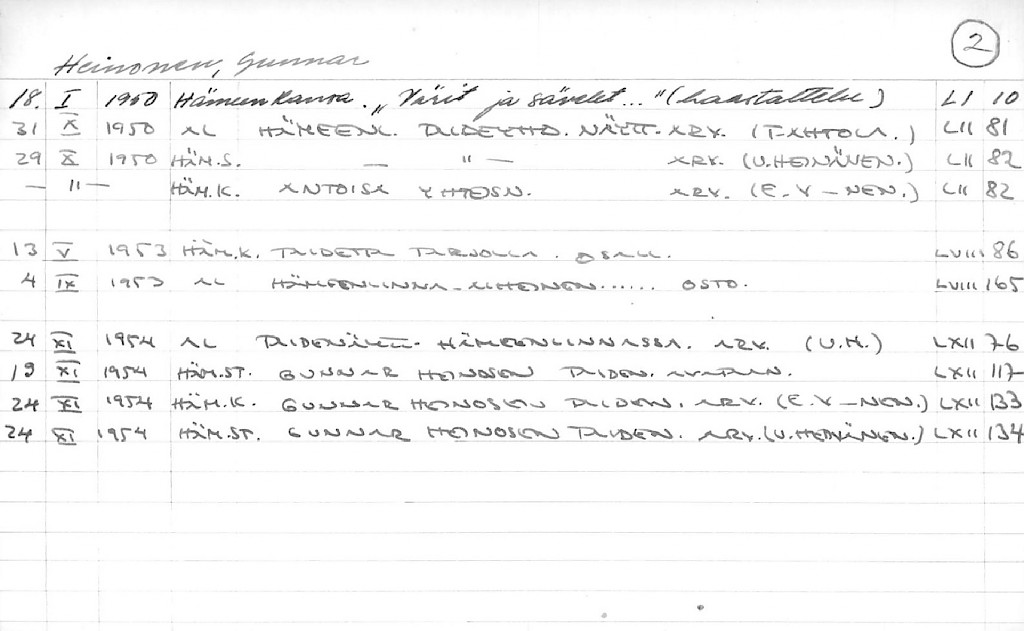 2
Heinonen, Gunnar
18. I 1950 Hämeen Kansa. "Värit ja sävelet..." (haastattelu) LI 10
31 X 1950 AL HÄMEENL. TAIDEYHD. NÄYTT. ARV. (T. AHTOLA.) LII 81
29 X 1950 HÄM.S. — " — ARV. (U. HEINÄNEN.) LII 82
— " — HÄM.K. ANTOISA YHTEISN. ARV. (E. V—NEN.) LII 82
13 V 1953 HÄM.K. TAIDETTA TARJOLLA. OSALL. LVIII 86
4 IX 1953 AL HÄMEENLINNA- ...... OSTO. LVIII 165
24 XI 1954 AL TAIDENÄYTT. HÄMEENLINNASSA. ARV. (U.H.) LXII 76
19 XI 1954 HÄM.ST. GUNNAR HEINOSEN TAIDEN. LXII 117
24 XI 1954 HÄM.K. GUNNAR HEINOSEN TAIDEN. ARV. (E. V—NEN.) LXII 133
24 XI 1954 HÄM.ST. GUNNAR HEINOSEN TAIDEN. ARV. (U. HEINÄNEN.) LXII 134